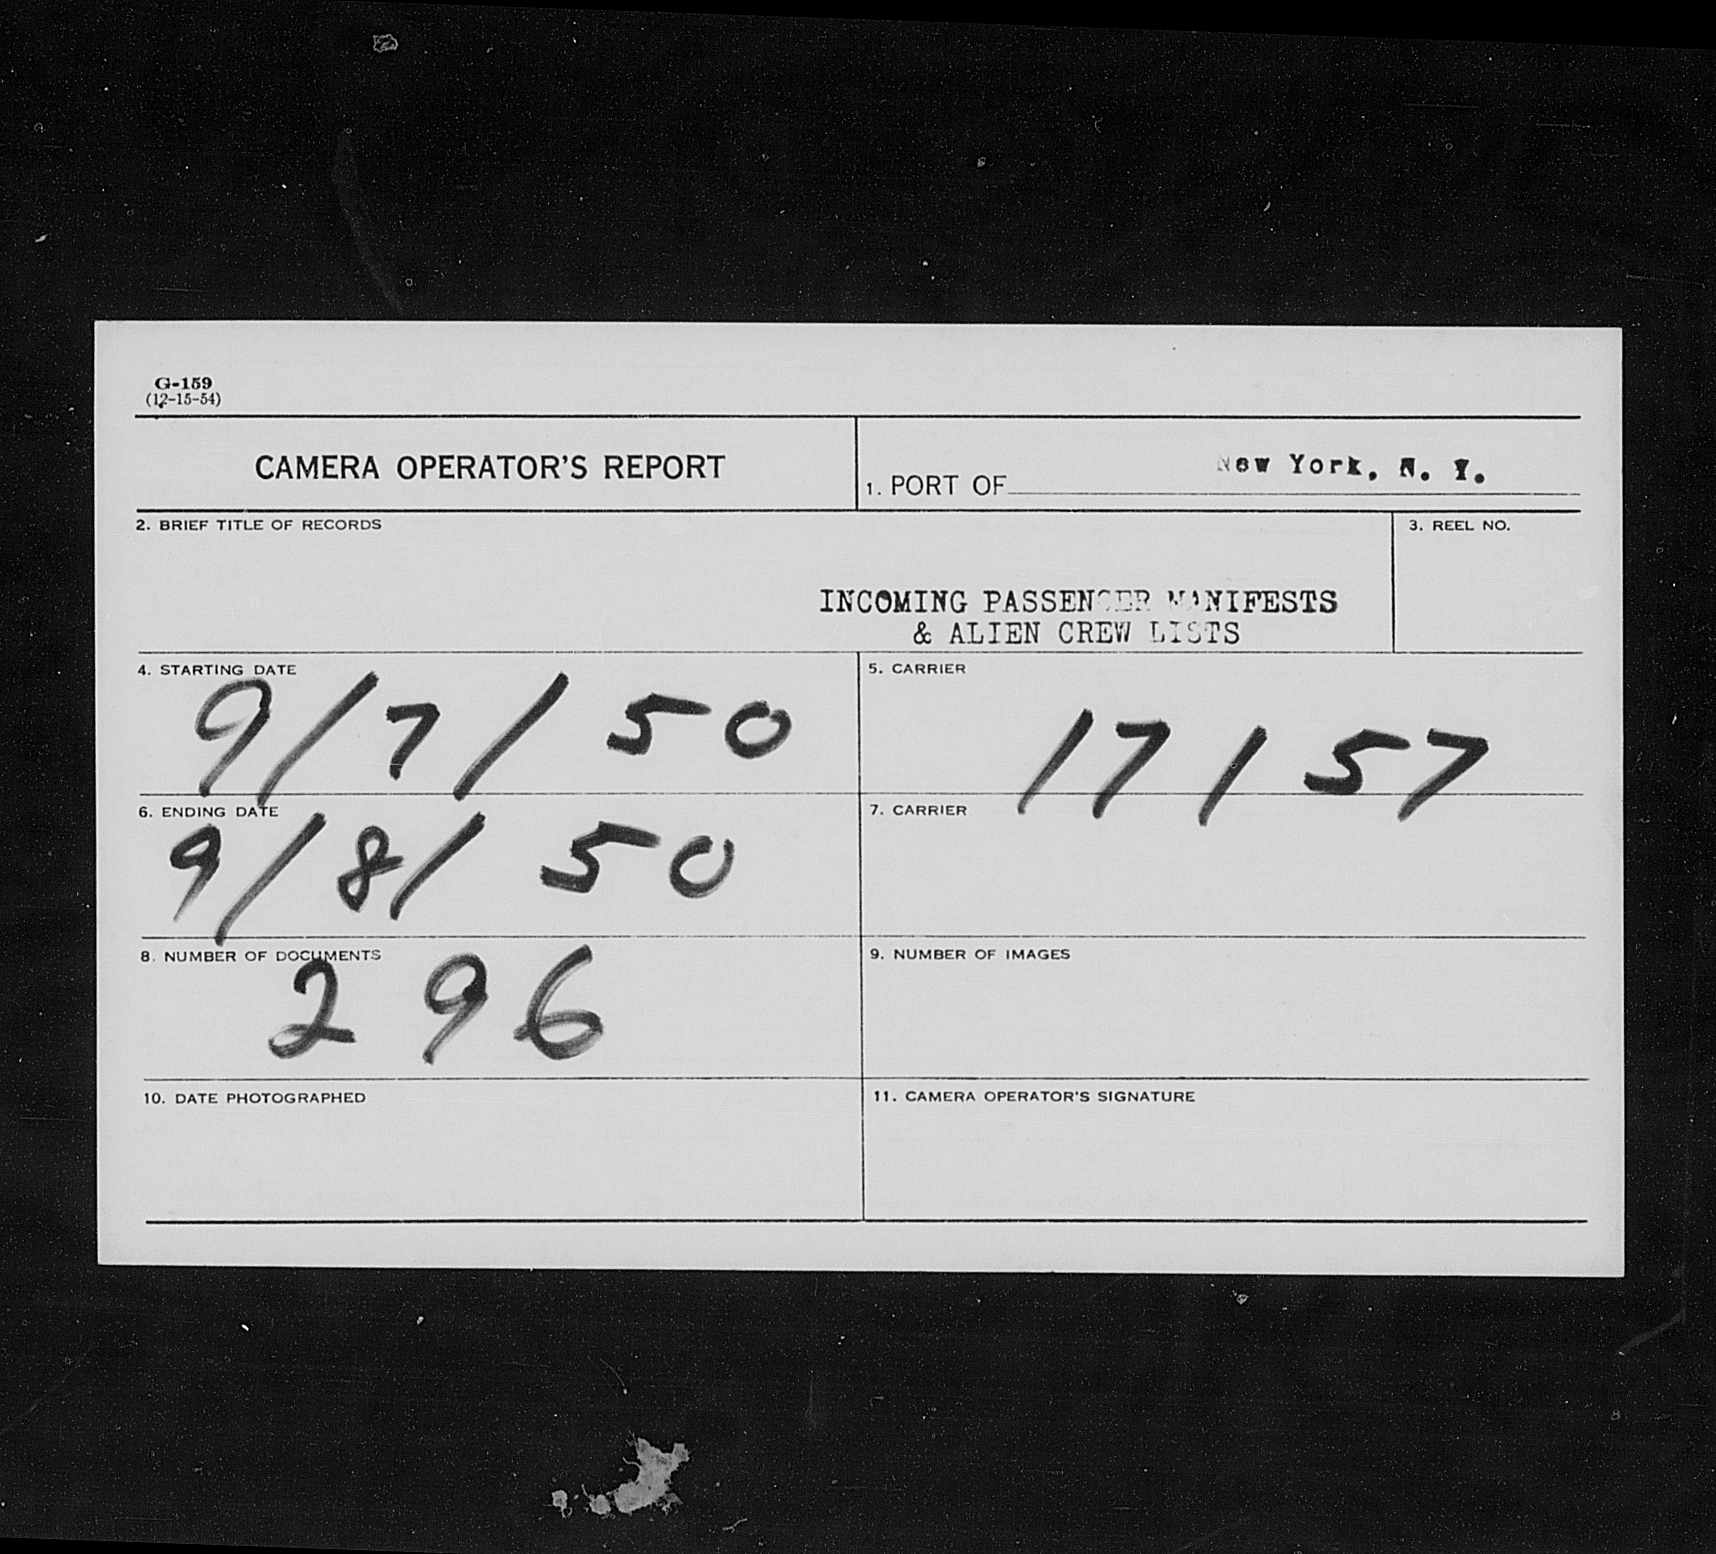 G-159
(12-15-54)
CAMERA OPERATOR'S REPORT
1. PORT OF New York, N. Y.
2. BRIEF TITLE OF RECORDS
3. REEL NO.
INCOMING PASSENGER MANIFESTS
& ALIEN CREW LISTS
4. STARTING DATE
9/7/50
5. CARRIER
17157
6. ENDING DATE
9/8/50
7. CARRIER
8. NUMBER OF DOCUMENTS
296
9. NUMBER OF IMAGES
10. DATE PHOTOGRAPHED
11. CAMERA OPERATOR'S SIGNATURE